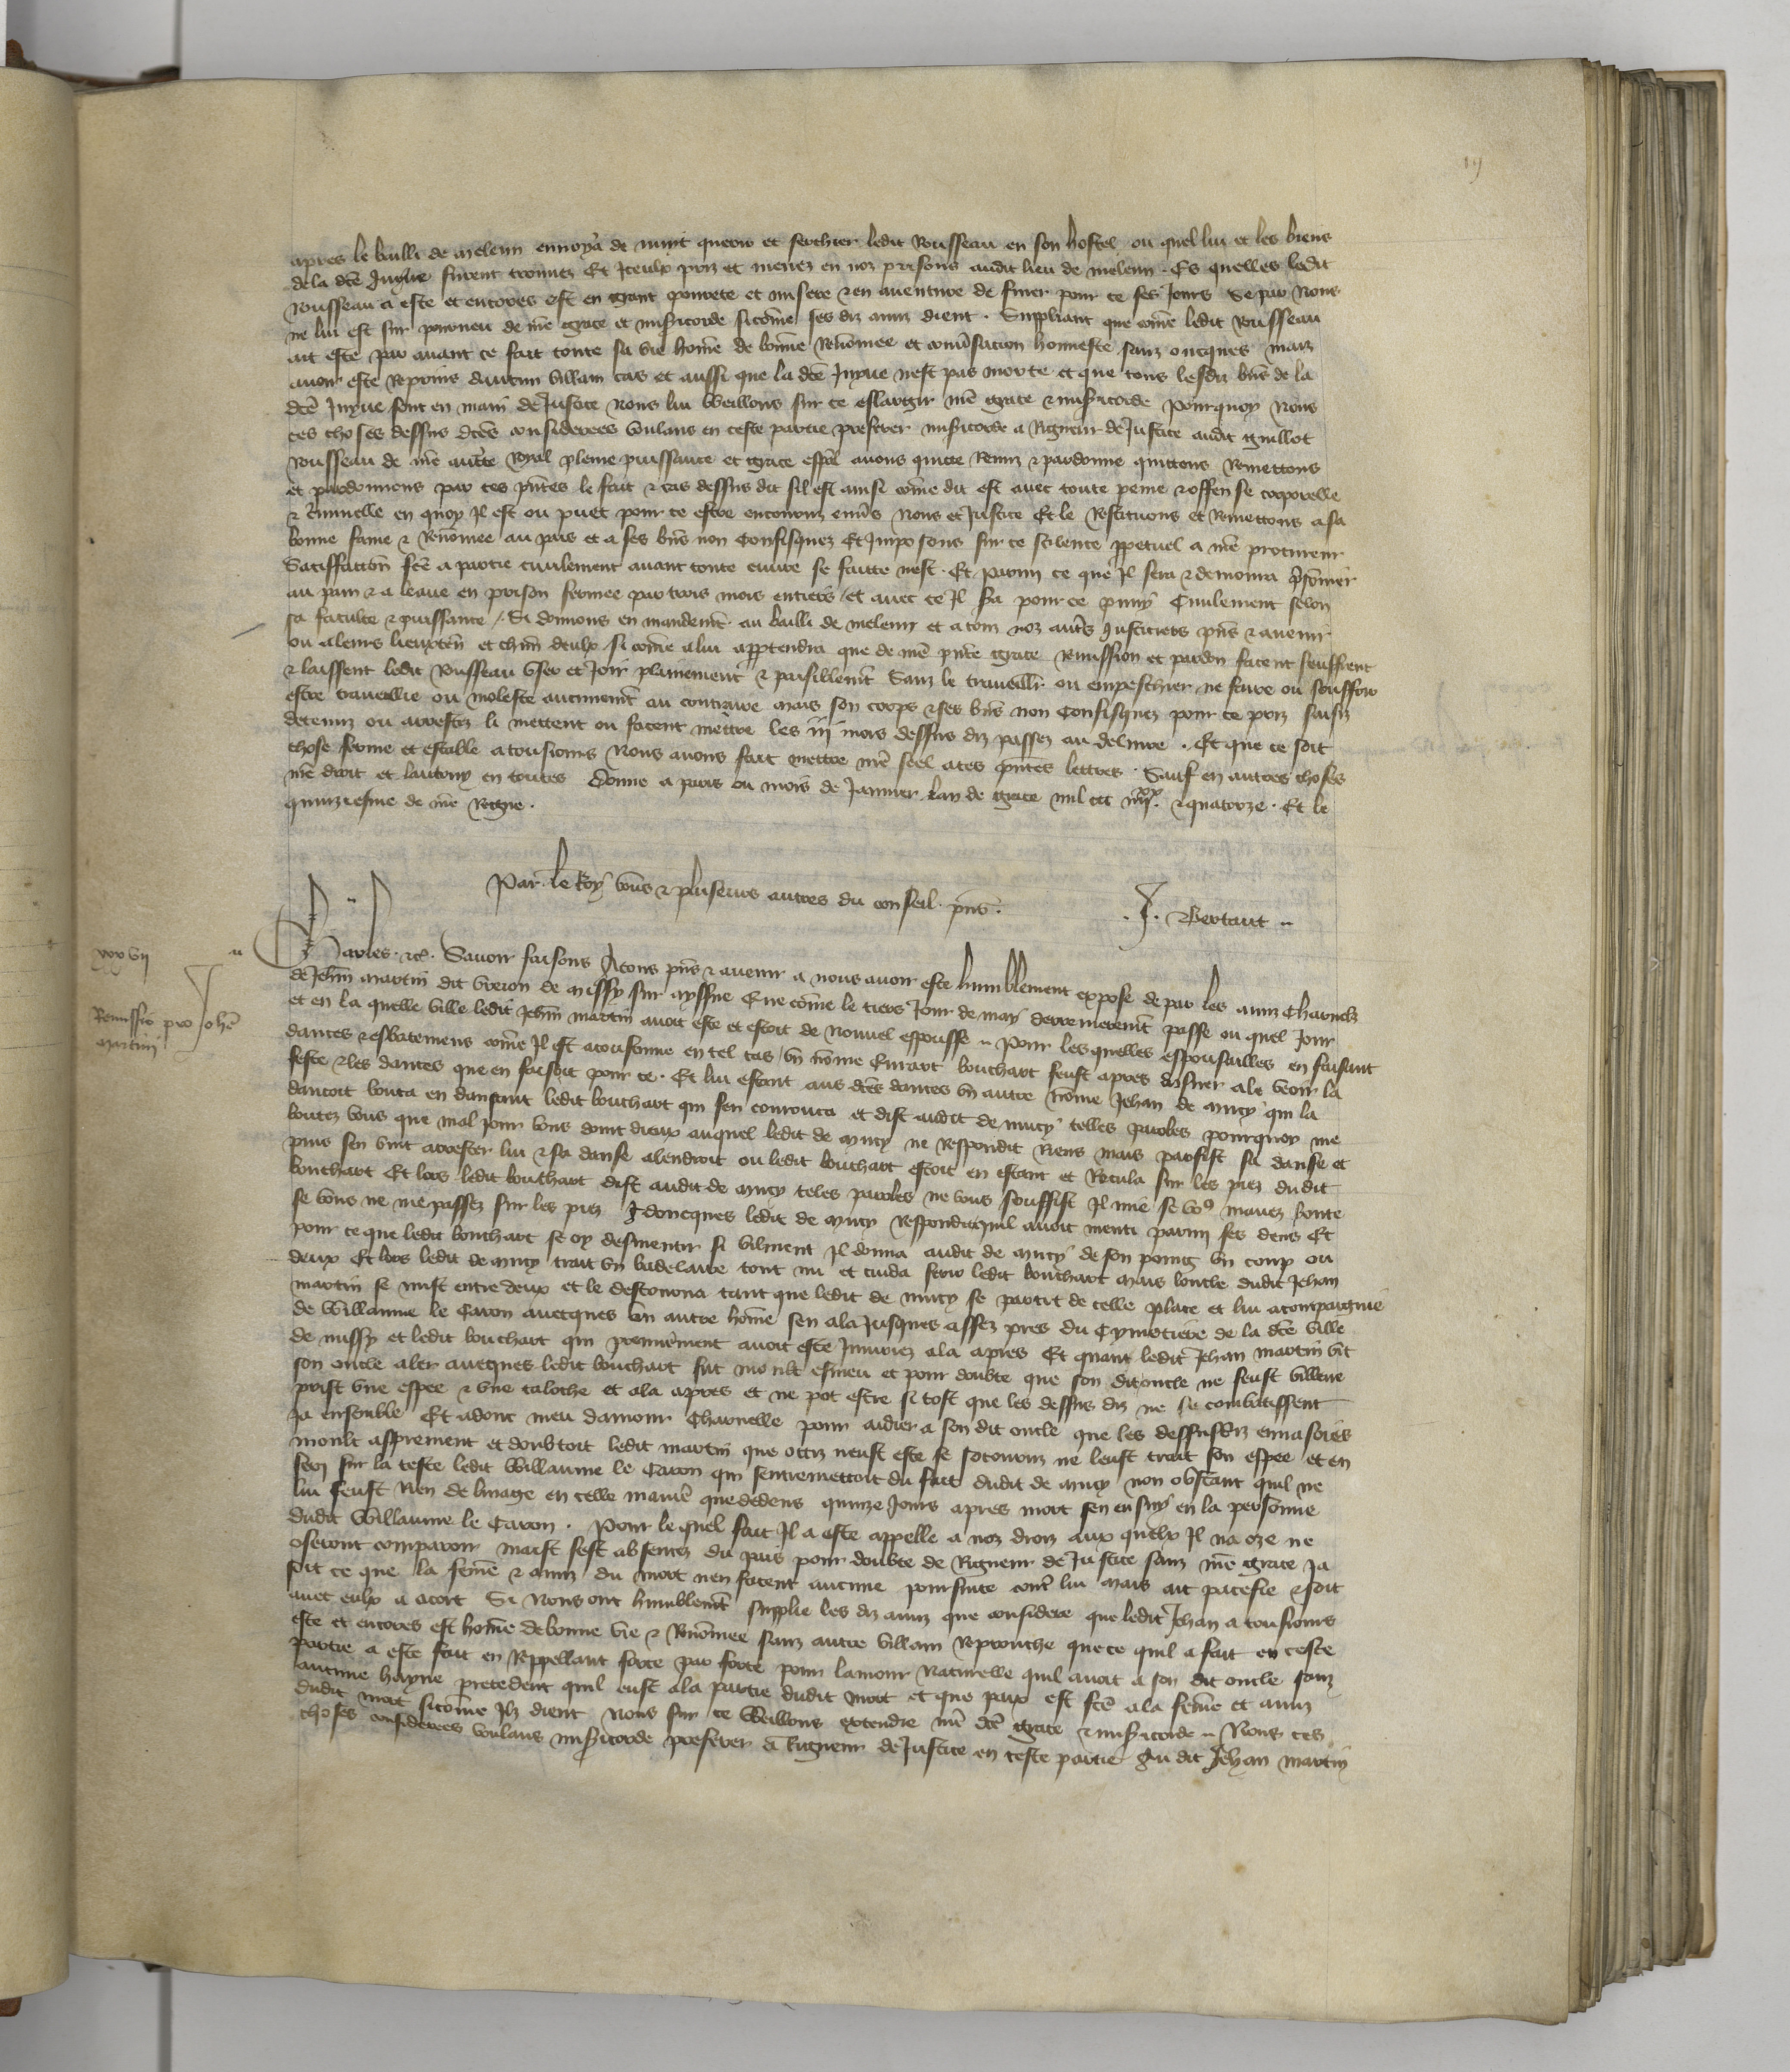 19
apres le bailli de meleun envoya de nuit querir et serchier ledit Rousseau en son hostel ou quel lui et les biens
de la dcẽ Juyve furent trouvez Et Iceulx priz et menez en noz prisons audit lieu de meleun. Es quelles ledit
Rousseau a este et encores est en grant povrete et misere & en aventure de finer pour ce ses Jours Se par Nous
ne lui est sur pourveu de nr̃e grace et mĩsericorde sicõme ses diz amis dient. Suppliant que cõme ledit Rousseau
ait este par avant ce fait toute sa vie hõme de bonne Renõmee et conũsacion honneste sanz oncques maiz
avoir este Repris daucun villain cas et aussi que la dcẽ Juyve nest pas morte et que tous lesdiz biẽs de la
dcẽ Juyve sont en main de Justice Nous lui Veillons sur ce eslargir nr̃e grace & mĩsicorde Pourquoy Nous
ces choses dessus dcẽs considerees voulans en ceste partie preferer misicorde a Rigueur de Justice audit guillot
Rousseau de nr̃e aucte Royal pleine puissance et grace esp̃al avons quitte Remis & pardonne quittons Remettons
et pardonnons par ces pñtes le fait & cas dessus dit sil est ainsi cõme dit est avec toute peine & offense corporelle
& Crimnelle en quoy Il est ou puet pour ce estre encouruz enṽs Nous et Justice Et le Restituons et Remettons a sa
bonne fame & Renõmee au pais et a ses biẽs non Confisquez Et Imposons sur ce scilence ppetuel a nr̃e procureur
Satisfaction fcẽ a partie civilement avant toute euvre se faicte nest. Et Parmi ce que Il sera & demourra p̃sonnier
au pain & a leaue en prison fermee par trois mois entiers / et avec ce Il sa pour ce pugny Civilement selon
sa faculte & puissance / Si donnons en mandemẽt au bailli de meleun et a tous noz autr̃s Justiciers pñs & avenir
ou a leurs lieuxten̄ et chũn deulx si cõme a lui appartendra que de nr̃e pñte grace Remission et pardon facent seuffrent
& laissent ledit Rousseau user et Joir plainement & paisiblemẽt Sanz le travaillir ou empeschier ne faire ou souffrir
estre travaillie ou moleste aucunemẽt au contraire mais son corps & ses biẽs non Confisquez pour ce priz saisiz
detenuz ou arrestez li mettent ou facent mettre les iij mois dessus diz passez au delivre. Et que ce soit
chose ferme et estable a tousiours Nous avons fait mettre nr̃e seel a ces pñtes lettres. Sauf en autres choses
nr̃e droit et lautruy en toutes Donne a paris ou mois de Janvier lan de grace mil ccc iiijxx & quatorze. Et le
quinziesme de nr̃e Regne.
Par le Roy vous & plusieurs autres du conseil. pñs.
. J. Bertaut
xxvij
Charles &c. Savoir faisons A tous pñs & avenir a nous avoir este humblement expose de par les amis Charnelz
Remissio pro Johẽ
martini
de Jehan martin dit Vreion de missy sur ayssne Que cõme le tiers Jour de may derrenieremẽt passe ou quel Jour
et en la quelle ville ledit Jehan martin avoit este et estoit de nouvel espousse Pour lesquelles espousailles en faisant
dances & esbatemens cõme Il est acoustume en tel cas / un nõme Evrart bouchart feust apres disner ale veoir la
feste & les dances que en faisoit pour ce. Et lui estant aus dcẽs dances un autre nõme Jehan de mucy qui la
dancoit bouta en dansant ledit bouchart qui sen courouca et dist audit de mucy telles paroles pourquoy me
boutez vous que mal jour vous doint dieux auquel ledit de mucy ne Respondit Riens mais parfist sa danse et
puis sen vint arrester lui & sa danse alendroit ou ledit bouchart estoit en estant et Recula sur les piez dudit
bouchart Et lors ledit bouchart dist audit de mucy teles paroles ne vous souffist Il mie se vo9 mavez boute
se vous ne me passez sur les piez Adoncques ledit de mucy Respondit quil avoit menti parmi ses dens Et
pour ce que ledit bouchart se oy desmentir si vilment Il donna audit de mucy de son poing un coup ou
deux Et lors ledit de mucy trait un badelaire tout nu et cuida ferir ledit bouchart mais loncle dudit Jehan
martin se mist entre deux et le destourna tant que ledit de mucy se partit de celle place et lui acompaignie
de Willaume le Caron avecques un autre hõme sen ala Jusques assez pres du Cymetiere de la dcẽ ville
de missy et ledit bouchart qui premierement avoit este Injuriez ala apres Et quant ledit Jehan martin vit
son oncle aler avecques ledit bouchart fut moult esmeu et pour doubte que son dit oncle ne feust villene
prist une espee & une taloche et ala apres et ne pot estre si tost que les dessus diz ne se combatissent
Ja ensemble Et adonc meu damour Charnelle pour aidier a son dit oncle que les dessusdiz envasoies
moult asprement et doubtoit ledit martin que occiz neust este se secouruz ne leust trait son espee et en
feri sur la teste ledit Willaume le Caron qui sentremettoit du fait dudit de mucy non obstant quil ne
lui feust Rien de linage en telle manier̃ que dedens quinze Jours apres mort sen ensuy en la personne
dudit Willaume le Caron. Pour le quel fait Il a este appelle a noz droiz aux quelx Il na oze ne
oseroit comparoir mais sest absentez du pais pour doubte de Rigueur de Justice sanz nr̃e grace Ja
soit ce que la femẽ & amis du mort nen facent aucune poursuite cont̃ lui mais ait pacefie & soit
avec eulx a acort Si Nous ont humblemẽt supplie les diz amis que considere que ledit Jehan a tousiours
este et encores est hõme de bonne vie & Renõmee sanz autre villain Reprouche que ce quil a fait en ceste
partie a este fait en Reppellant force par force pour lamour Naturelle quil avoit a son dit oncle sanz
aucune hayne precedent quil eust a la partie dudit mort et que paix est fcẽ a la femẽ et amis
dudit mort sicõme Ilz dient Nous sur ce Veillons extendre nr̃e dcẽ grace & misicorde Nous ces
choses considerees voulans misicorde preferer a Rigueur de Justice en ceste partie Au dit Jehan martin